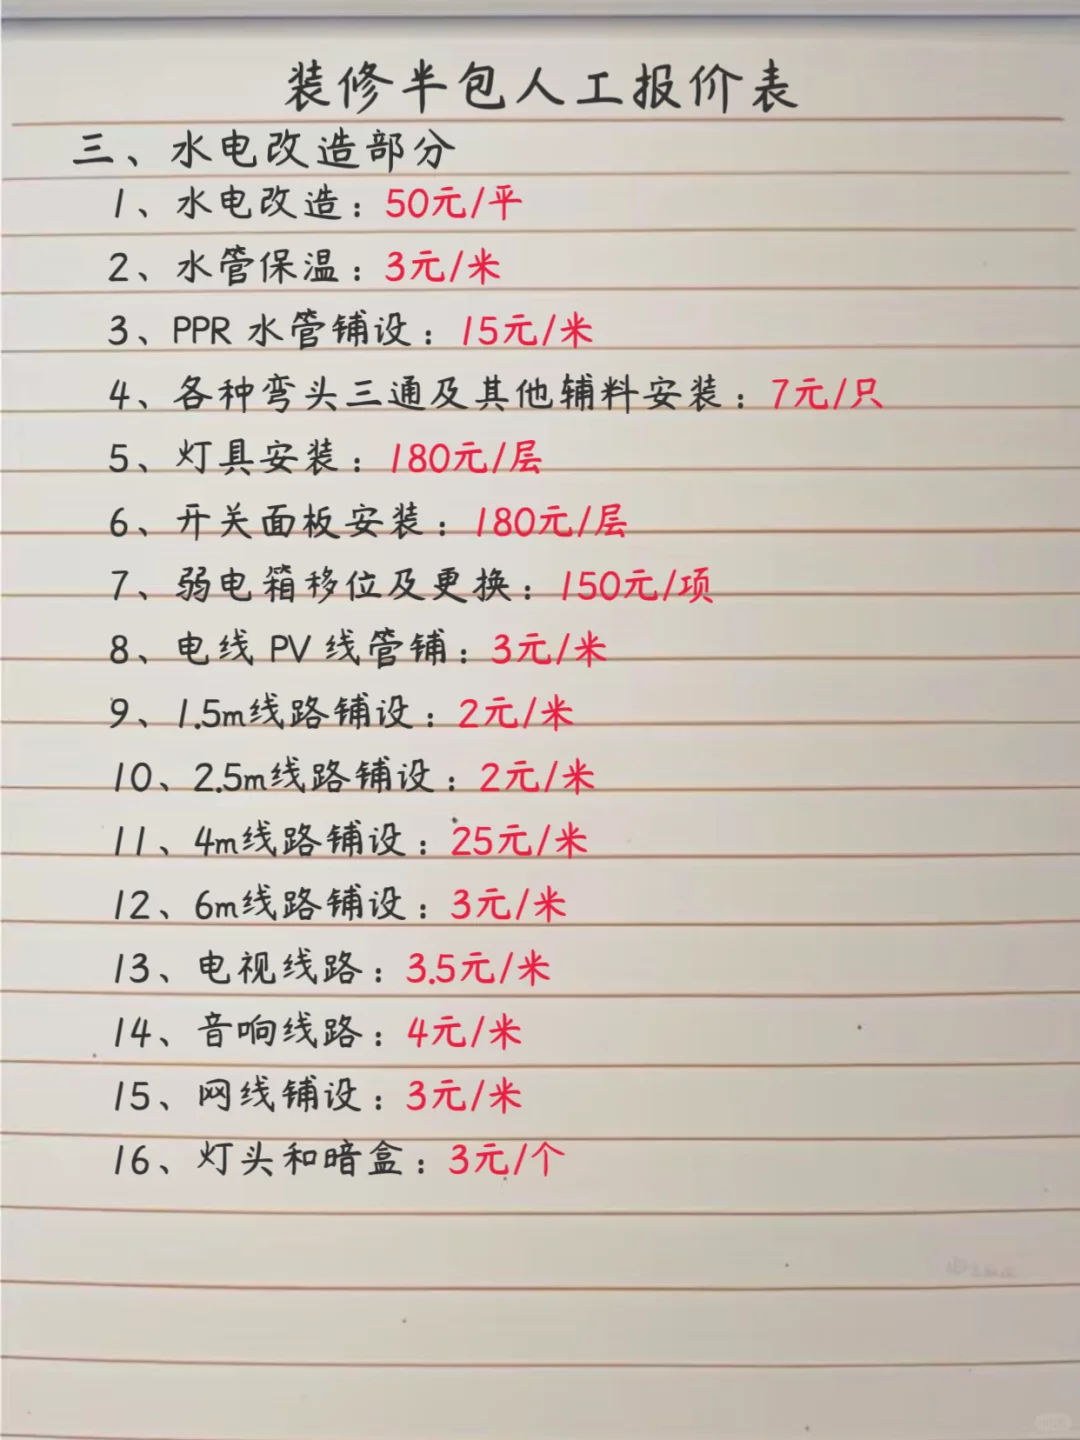 装修半包人工报价表
三、水电改造部分
1、水电改造：50元/平
2、水管保温：3元/米
3、PPR 水管铺设：15元/米
4、各种弯头三通及其他辅料安装：7元/只
5、灯具安装：180元/层
6、开关面板安装：180元/层
7、弱电箱移位及更换：150元/项
8、电线 PV 线管铺：3元/米
9、1.5m线路铺设：2元/米
10、2.5m线路铺设：2元/米
11、4m线路铺设：25元/米
12、6m线路铺设：3元/米
13、电视线路：3.5元/米
14、音响线路：4元/米
15、网线铺设：3元/米
16、灯头和暗盒：3元/个